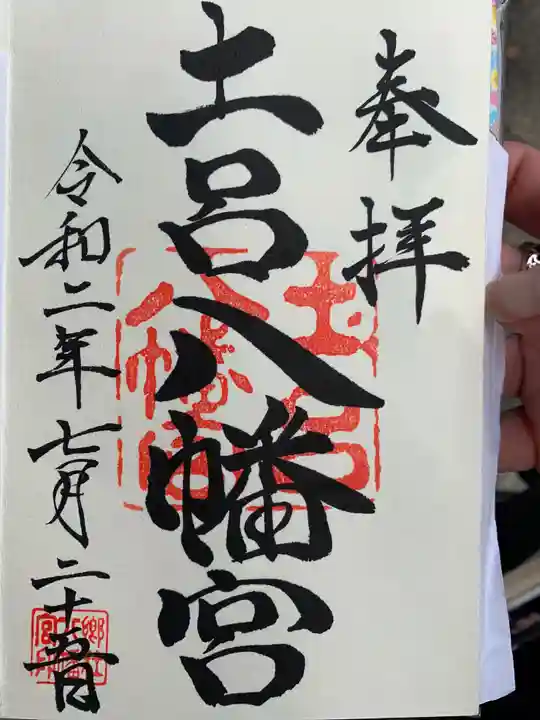 奉拝
土呂八幡宮
令和二年七月二十四日
土呂八幡宮